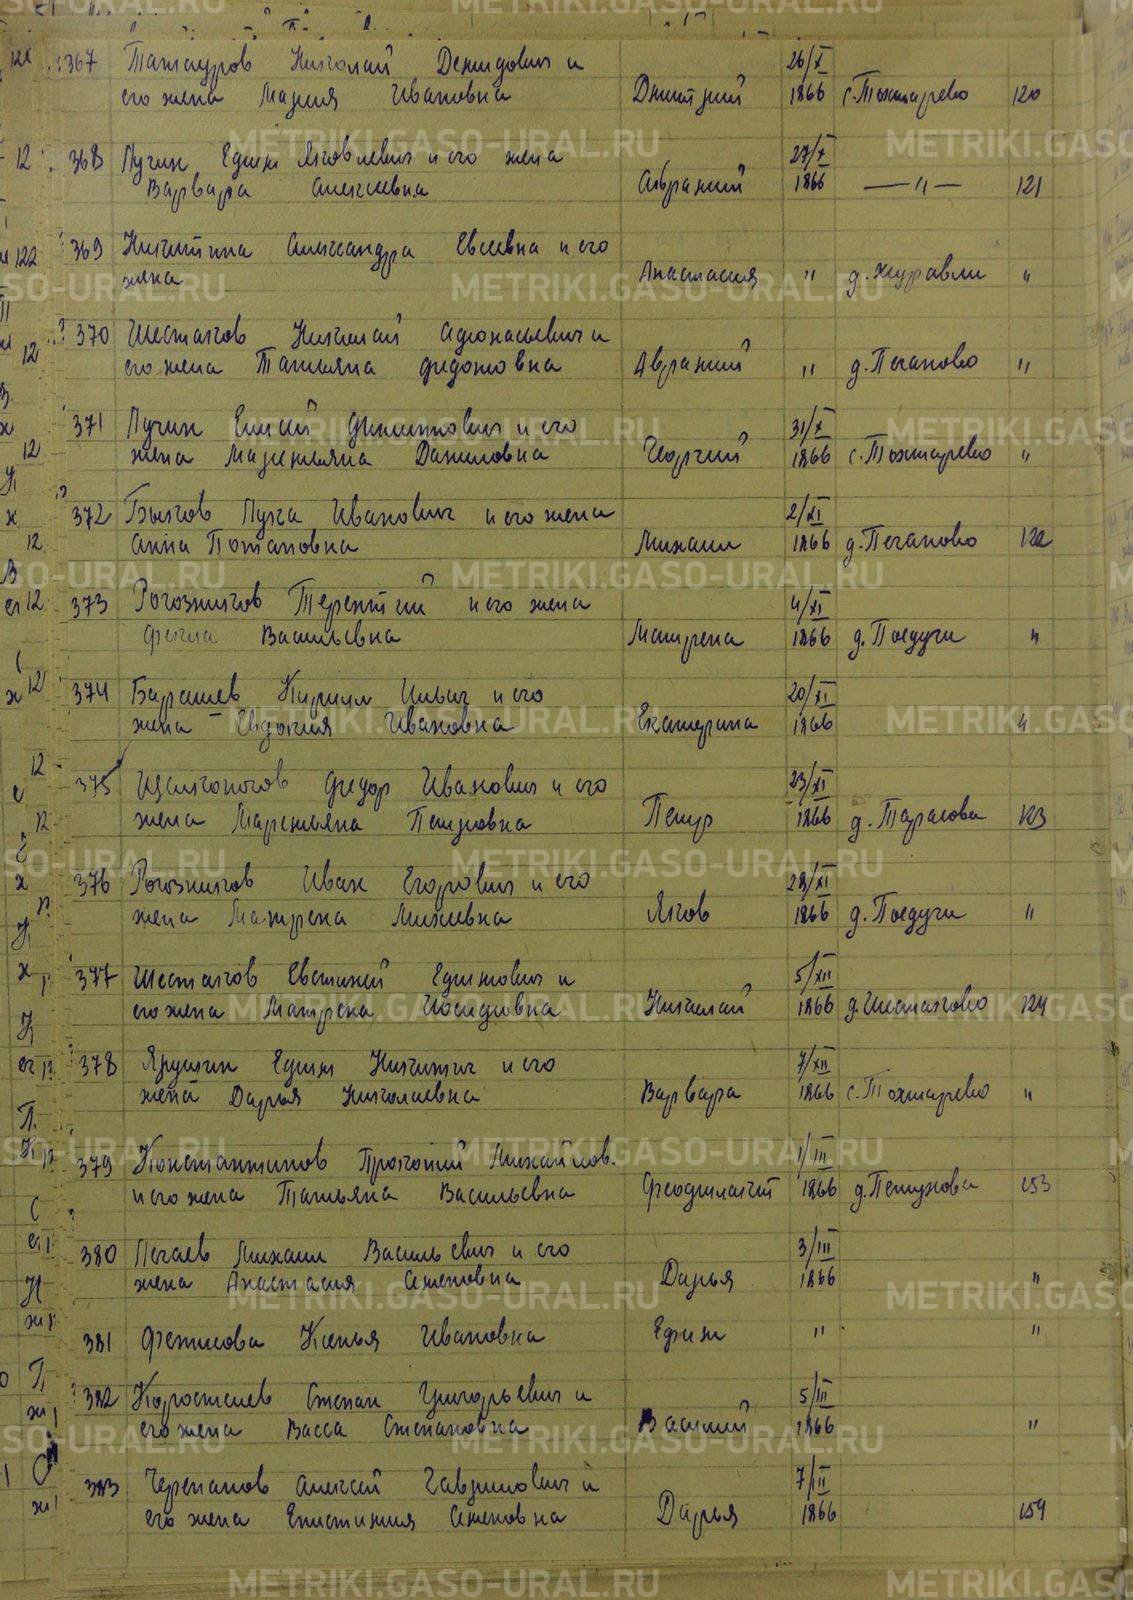 367 Татауров Николай Демидович и 26/X
его жена Мария Ивановна Дмитрий 1866 с. Тохтарево 120
368 Пучин Ефим Яковлевич и его жена 27/X
Варвара Алексеевна Абрамий 1866 —"— 121
369 Никитина Александра Евсеевна и его
жена Анастасия " д. Журавли "
370 Шестаков Николай Афонасьевич и
его жена Татьяна Федотовна Авраамий " д. Пеганово "
371 Пучин Елисей Филиппович и его 31/X
жена Маремьяна Даниловна Георгий 1866 с. Тохтарево "
372 Бычков Лука Иванович и его жена 2/XI
Анна Потаповна Михаил 1866 д. Пеганово 122
373 Рогозников Терентий и его жена 4/XI
Фекла Васильевна Матрена 1866 д. Поедуги "
374 Барашев Кирилл Ильич и его 20/XI
жена Евдокия Ивановна Екатерина 1866 "
375 Щелконогов Федор Иванович и его 23/XI
жена Маремьяна Петровна Петр 1866 д. Тарасова 123
376 Рогозников Иван Егорович и его 28/XI
жена Матрена Михеевна Яков 1866 д. Поедуги "
377 Шестаков Евстигней Ефимович и 5/XII
его жена Матрена Николай 1866 д. Шестаково 124
378 Ярушин Ефим Никитич и его 7/XII
жена Дарья Николаевна Варвара 1866 с. Тохтарево "
379 Константинов Прокопий Михайлов. 1/III
и его жена Татьяна Васильевна Феофилакт 1866 д. Петухова 153
380 Пегаев Михаил Васильевич и его 3/III
жена Анастасия Семеновна Дарья 1866 "
381 Фетисова Ксенья Ивановна Ефим " "
382 Коростелев Степан Григорьевич и 5/III
его жена Васса Степановна Василий 1866 "
383 Черепанов Алексей Гаврилович и 7/III
его жена Епистиния Семеновна Дарья 1866 154
METRIKI.GASO-URAL.RU